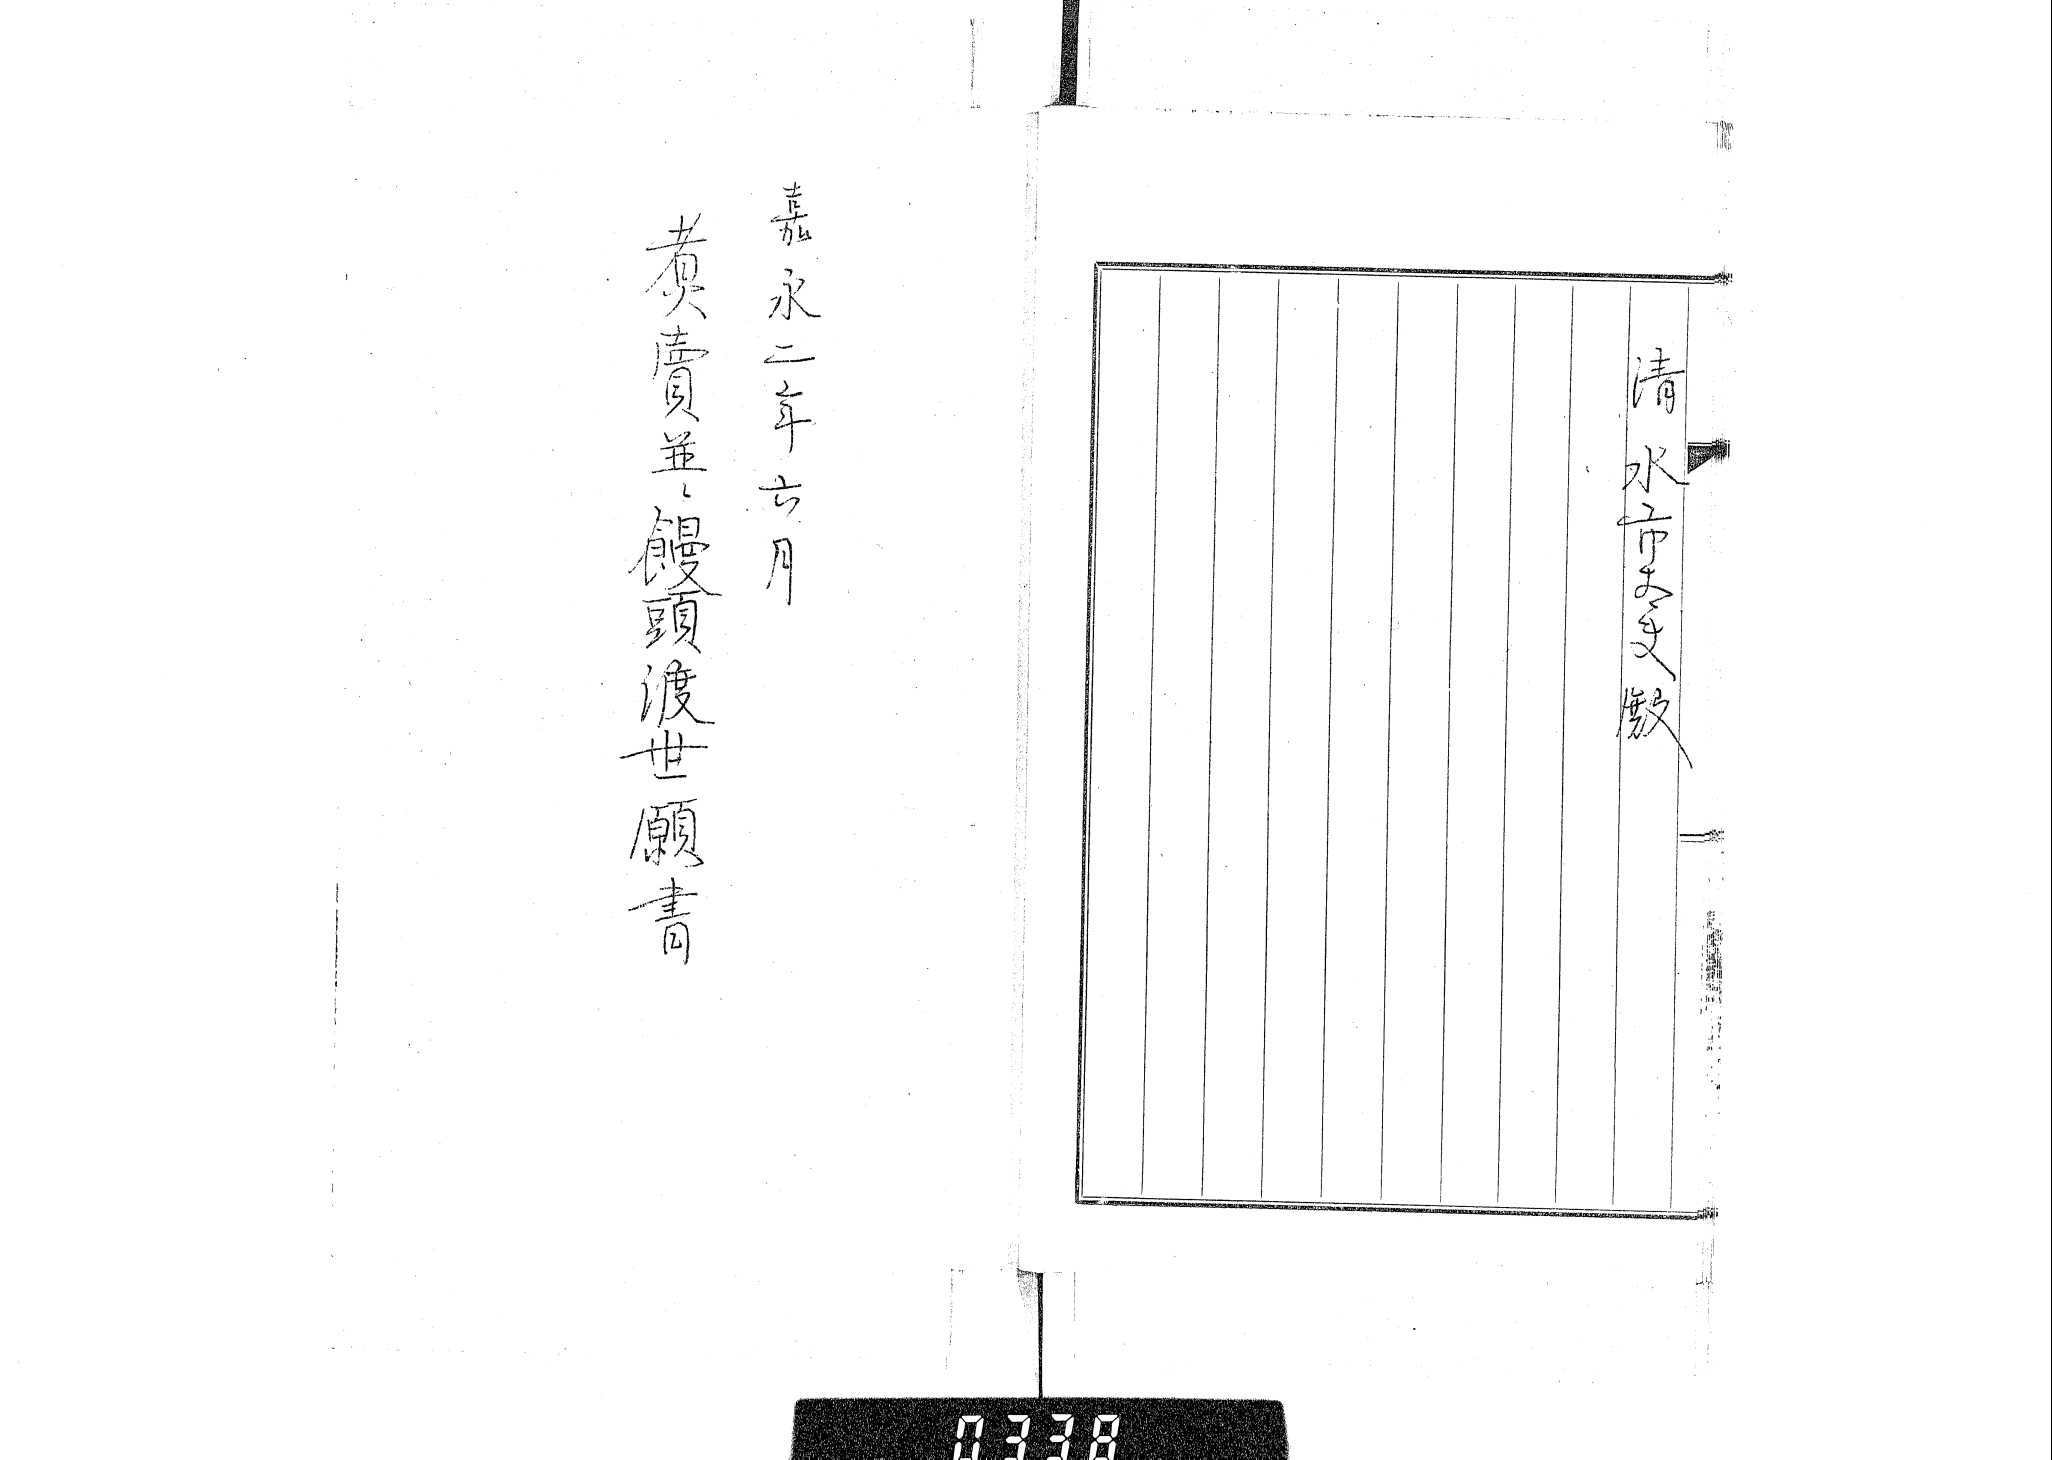 清水市太夫殿
嘉永二年六月
煮賣並ニ饅頭渡世願書
0338